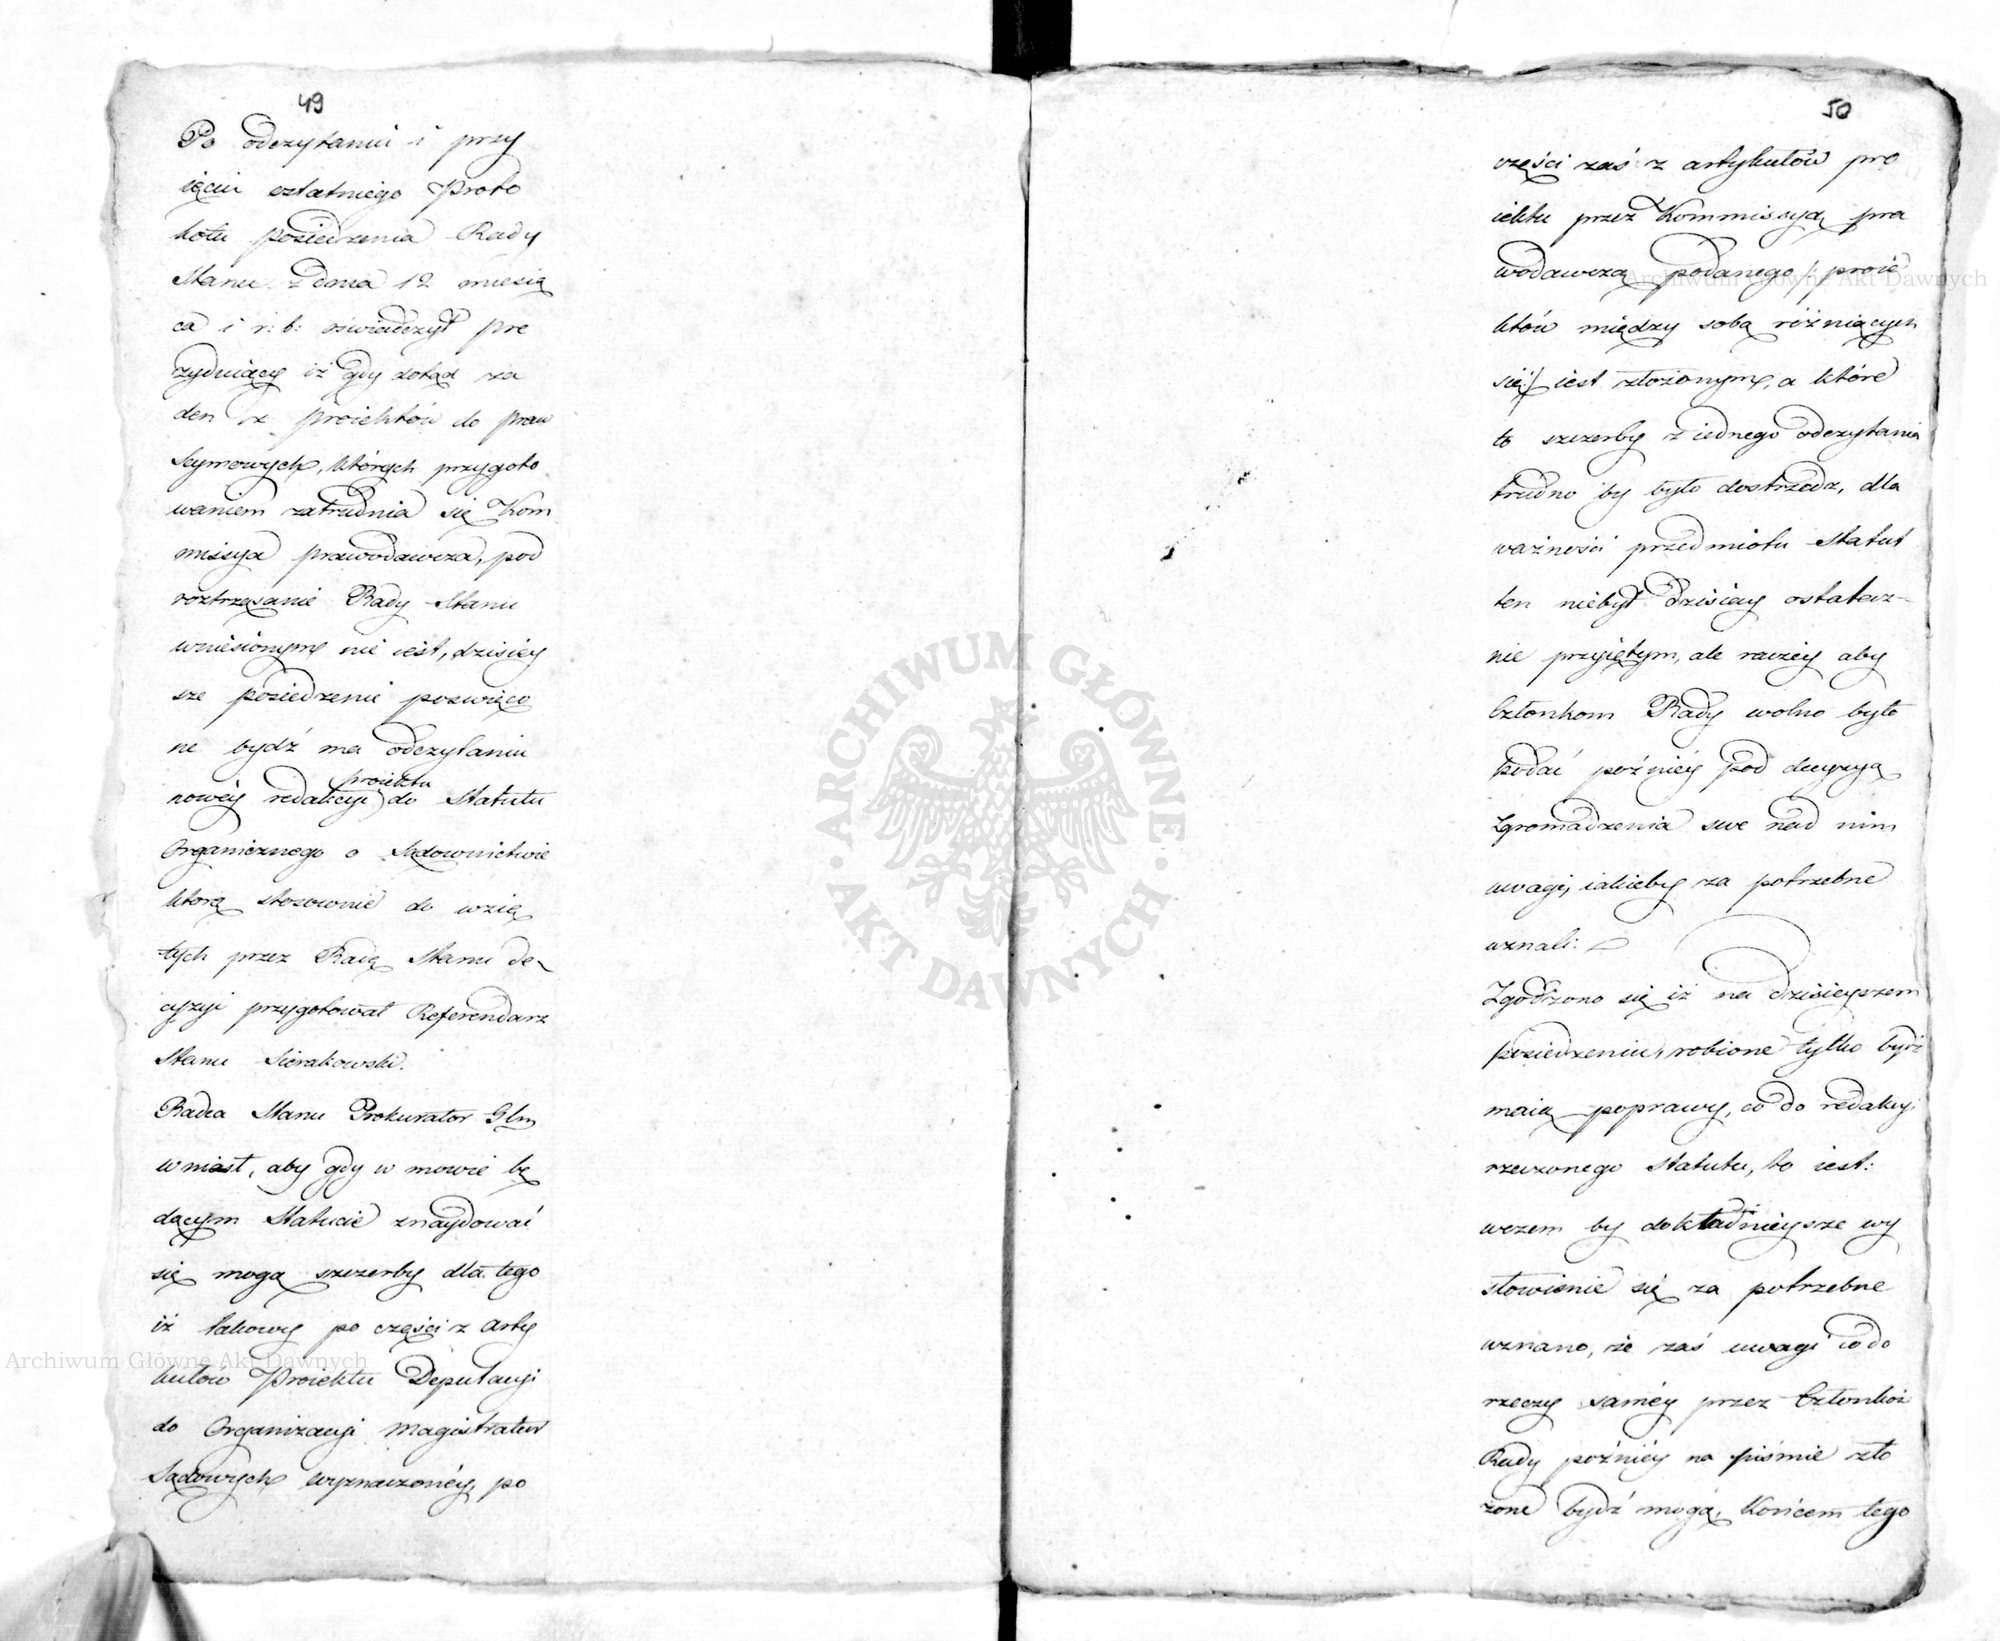 49
Po odczytaniu i przy
ięciu ostatniego Proto
kołu posiedzenia Rady
Stanu z dnia 12 miesią
ca i r: b: oświadczył pre
zyduiący iż gdy dotąd ża
den z proiektów do praw
Seymowych, których przygoto
waniem zatrudnia się Kom
missya prawodawcza, pod
roztrząsanie Rady Stanu
wniesionym nie iest, dzisiey
sze posiedzenie poswięco
ne bydź ma odczytaniu
proiektu
nowéy redakcyi do Statutu
Organicznego o Sądownictwie
którą stosownie do wzię
tych przez Radę Stanu de
cyzyi przygotował Referendarz
Stanu Sierakowski.
Radca Stanu Prokurator Glny
wniosł, aby gdy w mowie bę
dącym Statucie znaydować
się mogą szczerby dla tego
iż takowy po części z arty
kułów Proiektu Deputacyi
do Organizacyi Magistratur
Sądowych wyznaczonéy, po
50
części zaś z artykułów pro
iektu przez Kommissyą pra
wodawczą podanego /: proie
któw między sobą różniących
się :/ iest złożonym, a które
to szczerby z iednego odczytania
trudno by było dostrzedz, dla
ważności przedmiotu Statut
ten niebył dzisiay ostatecz-
nie przyiętym, ale raczéy aby
Członkom Rady wolno było
podać poźniéy pod decyzyą
Zgromadzenia swe nad nim
uwagi, iakieby za potrzebne
uznali:
Zgodzono się iż na dzisieyszem
posiedzeniu, robione tylko bydź
maią poprawy, co do redakcyi
rzeczonego Statutu, to iest:
wczem by dokładnieysze wy
słowienie się za potrzebne
uznano, że zaś uwagi co do
rzeczy saméy przez Członków
Rady poźniéy na piśmie zło
żone bydź mogą, Końcem tego
ARCHIWUM GŁÓWNE AKT DAWNYCH
Archiwum Główne Akt Dawnych
Archiwum Główne Akt Dawnych